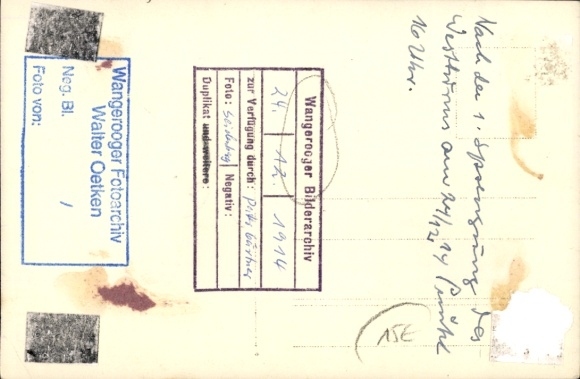 Nach der 1. Sprengung des
Westturms am 24/12 14
16 Uhr.
Wangerooger Bilderarchiv
24. 12. 1914
zur Verfügung durch:
Foto: Negativ:
Duplikat und weitere:
Wangerooger Fotoarchiv
Walter Oetken
Neg. Bl. /
Foto von:
15E